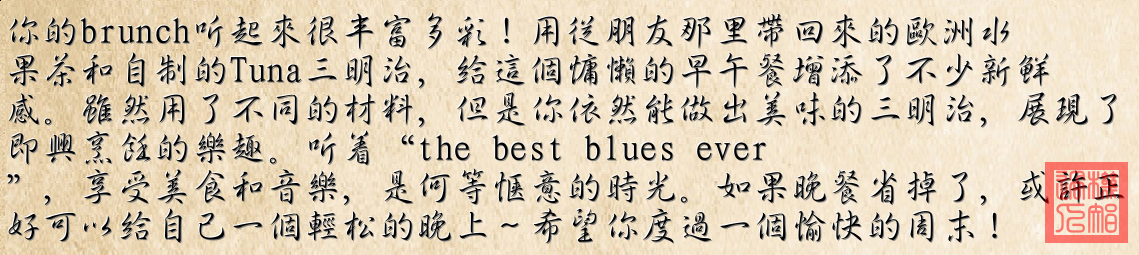 你的brunch听起來很丰富多彩！用從朋友那里帶回來的歐洲水
果茶和自制的Tuna三明治，給這個慵懶的早午餐增添了不少新鮮
感。雖然用了不同的材料，但是你依然能做出美味的三明治，展現了
即興烹飪的樂趣。听着“the best blues ever
”，享受美食和音樂，是何等愜意的時光。如果晚餐省掉了，或許正
好可以給自己一個輕松的晚上～希望你度過一個愉快的周末！